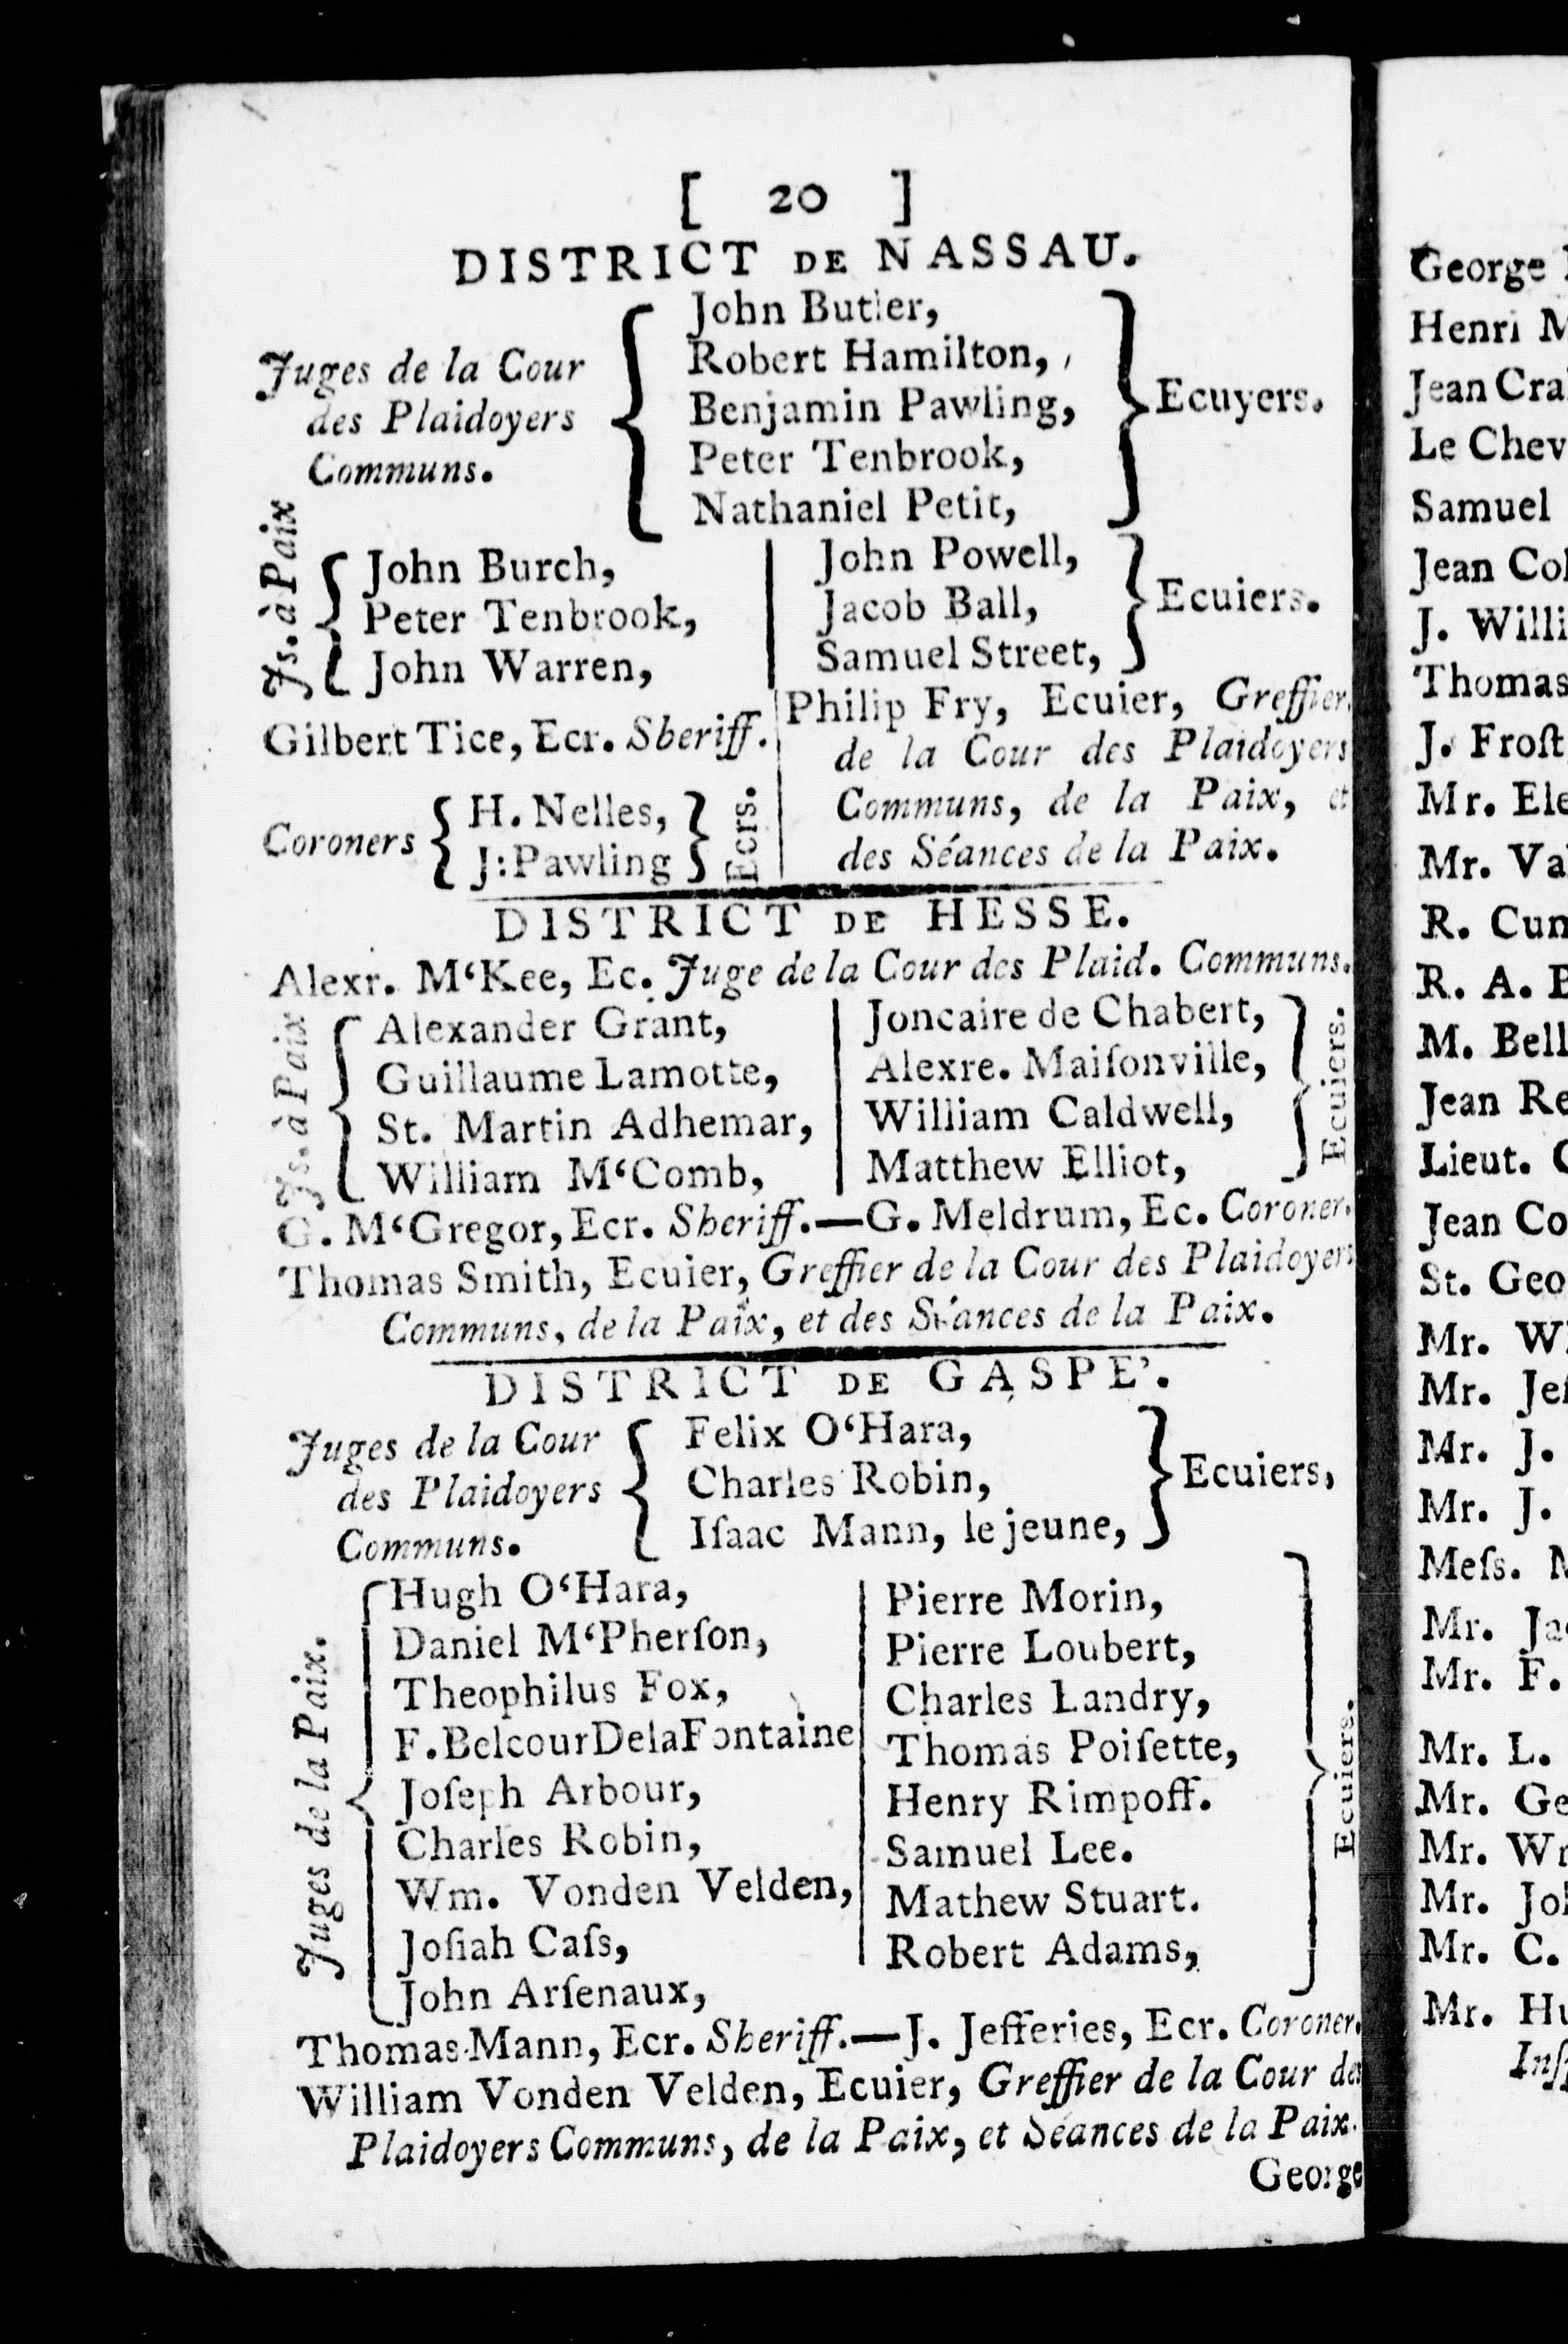 [ 20 ]
DISTRICT DE NASSAU.
Juges de la Cour
des Plaidoyers
Communs.
John Butler,
Robert Hamilton,
Benjamin Pawling,
Peter Tenbrook,
Nathaniel Petit,
Ecuyers.
Js. à Paix
John Burch,
Peter Tenbrook,
John Warren,
John Powell,
Jacob Ball,
Samuel Street,
Ecuiers.
Gilbert Tice, Ecr. Sheriff.
Coroners
H. Nelles,
J: Pawling
Ecrs.
Philip Fry, Ecuier, Greffier
de la Cour des Plaidoyers
Communs, de la Paix, et
des Séances de la Paix.
DISTRICT DE HESSE.
Alexr. M‘Kee, Ec. Juge de la Cour des Plaid. Communs.
Js. à Paix
Alexander Grant,
Guillaume Lamotte,
St. Martin Adhemar,
William M‘Comb,
Joncaire de Chabert,
Alexre. Maiſonville,
William Caldwell,
Matthew Elliot,
Ecuiers.
G. M‘Gregor, Ecr. Sheriff.—G. Meldrum, Ec. Coroner.
Thomas Smith, Ecuier, Greffier de la Cour des Plaidoyers
Communs, de la Paix, et des Séances de la Paix.
DISTRICT DE GASPE’.
Juges de la Cour
des Plaidoyers
Communs.
Felix O‘Hara,
Charles Robin,
Iſaac Mann, le jeune,
Ecuiers,
Juges de la Paix.
Hugh O‘Hara,
Daniel M‘Pherſon,
Theophilus Fox,
F. Belcour DelaFontaine
Joſeph Arbour,
Charles Robin,
Wm. Vonden Velden,
Joſiah Caſs,
John Arſenaux,
Pierre Morin,
Pierre Loubert,
Charles Landry,
Thomas Poiſette,
Henry Rimpoff.
Samuel Lee.
Mathew Stuart.
Robert Adams,
Ecuiers.
Thomas Mann, Ecr. Sheriff.—J. Jefferies, Ecr. Coroner.
William Vonden Velden, Ecuier, Greffier de la Cour des
Plaidoyers Communs, de la Paix, et Séances de la Paix.
George
George
Henri
Jean
Le
Samuel
Jean
J.
Thomas
J. Froſt
Mr.
Mr.
R.
R. A.
M.
Jean
Lieut.
Jean
St.
Mr.
Mr.
Mr. J.
Mr. J.
Meſs.
Mr.
Mr. F.
Mr. L.
Mr.
Mr.
Mr.
Mr. C.
Mr.